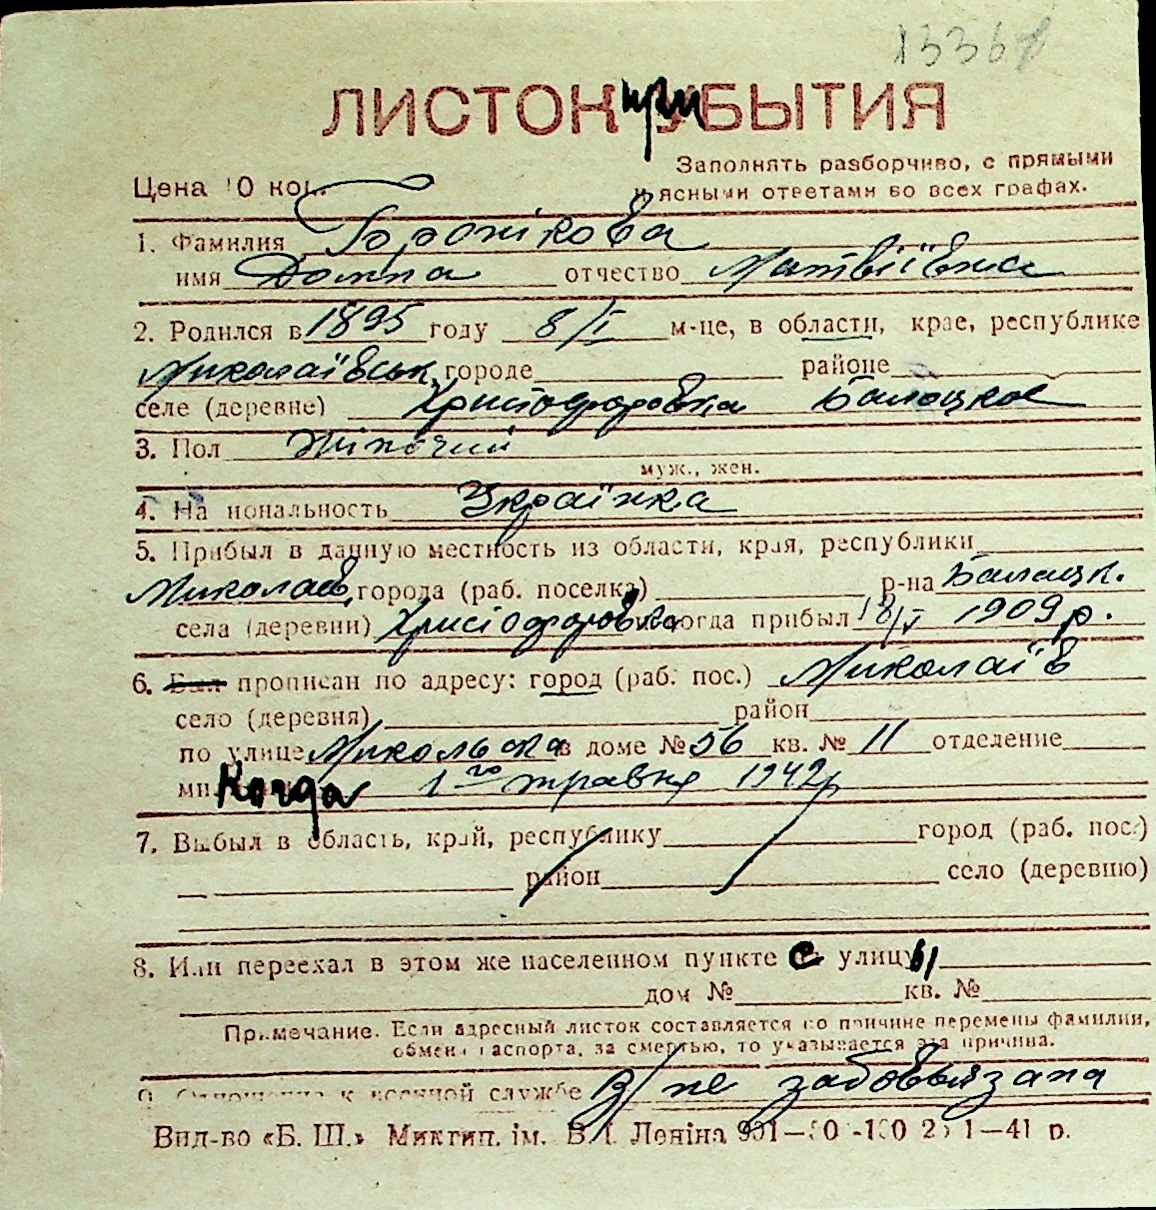 13361
ЛИСТОК при УБЫТИЯ
Заполнять разборчиво, с прямыми
Цена 10 коп. и ясными ответами во всех графах.
1. Фамилия
имя Домна отчество Матвіївна
2. Родился в 1895 году 8/I м-це, в области, крае, республике
Миколаївськ. городе районе
селе (деревне) Христофоровка Балацкое
3. Пол жіночий
муж., жен.
4. Национальность Українка
5. Прибыл в данную местность из области, края, республики
Миколаїв. города (раб. поселка) р-на Балацк.
села (деревни) Христофоровка когда прибыл 18/V 1909 р.
6. Был прописан по адресу: город (раб. пос.) Миколаїв
село (деревня) район
по улице Микольська в доме № 56 кв. № 11 отделение
Когда 1го травня 1942р
7. Выбыл в область, край, республику город (раб. пос.)
район село (деревню)
8. Или переехал в этом же населенном пункте с улицы
дом № кв. №
Примечание. Если адресный листок составляется по причине перемены фамилии,
обмена паспорта, за смертью, то указывается эта причина.
9. Отношение к военной службе В/ не забовьязана
Вид-во «Б. Ш.» Миктип. ім. В. І. Леніна